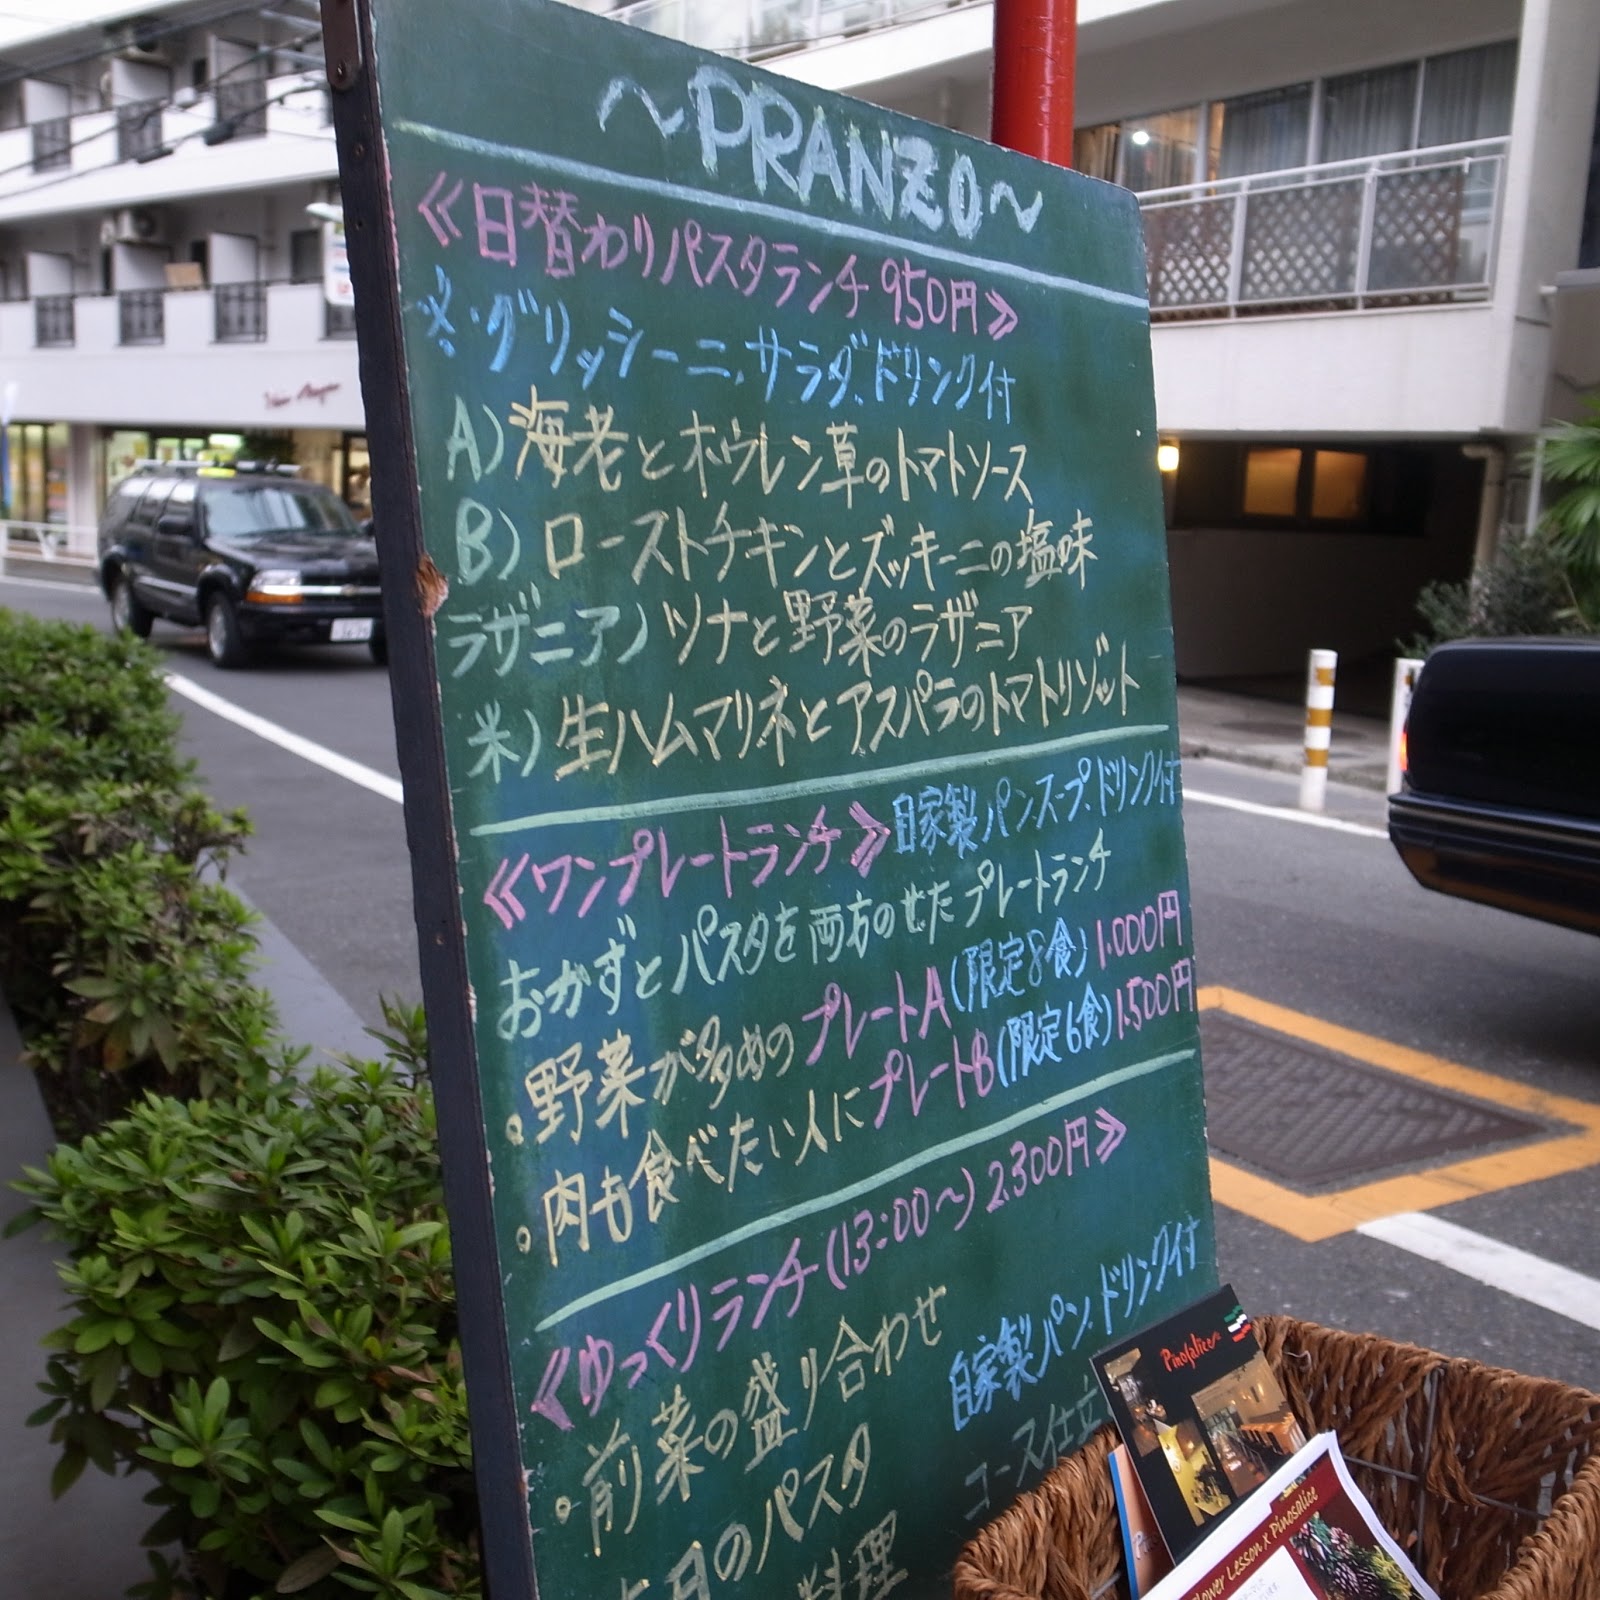 ～PRANZO～
《日替わりパスタランチ 950円》
※・グリッシーニ、サラダ、ドリンク付
A) 海老とホウレン草のトマトソース
B) ローストチキンとズッキーニの塩味
ラザニア) ツナと野菜のラザニア
米) 生ハムマリネとアスパラのトマトリゾット
《ワンプレートランチ》自家製パン、スープ、ドリンク付
おかずとパスタを両方のせたプレートランチ
。野菜が多めのプレートA(限定8食) 1.000円
。肉も食べたい人にプレートB(限定6食) 1.500円
《ゆっくりランチ(13:00～) 2.300円》
自家製パン、ドリンク付
。前菜の盛り合わせ
コース仕立
日のパスタ
料理
Pinosalice
Flower Lesson x Pinosalice